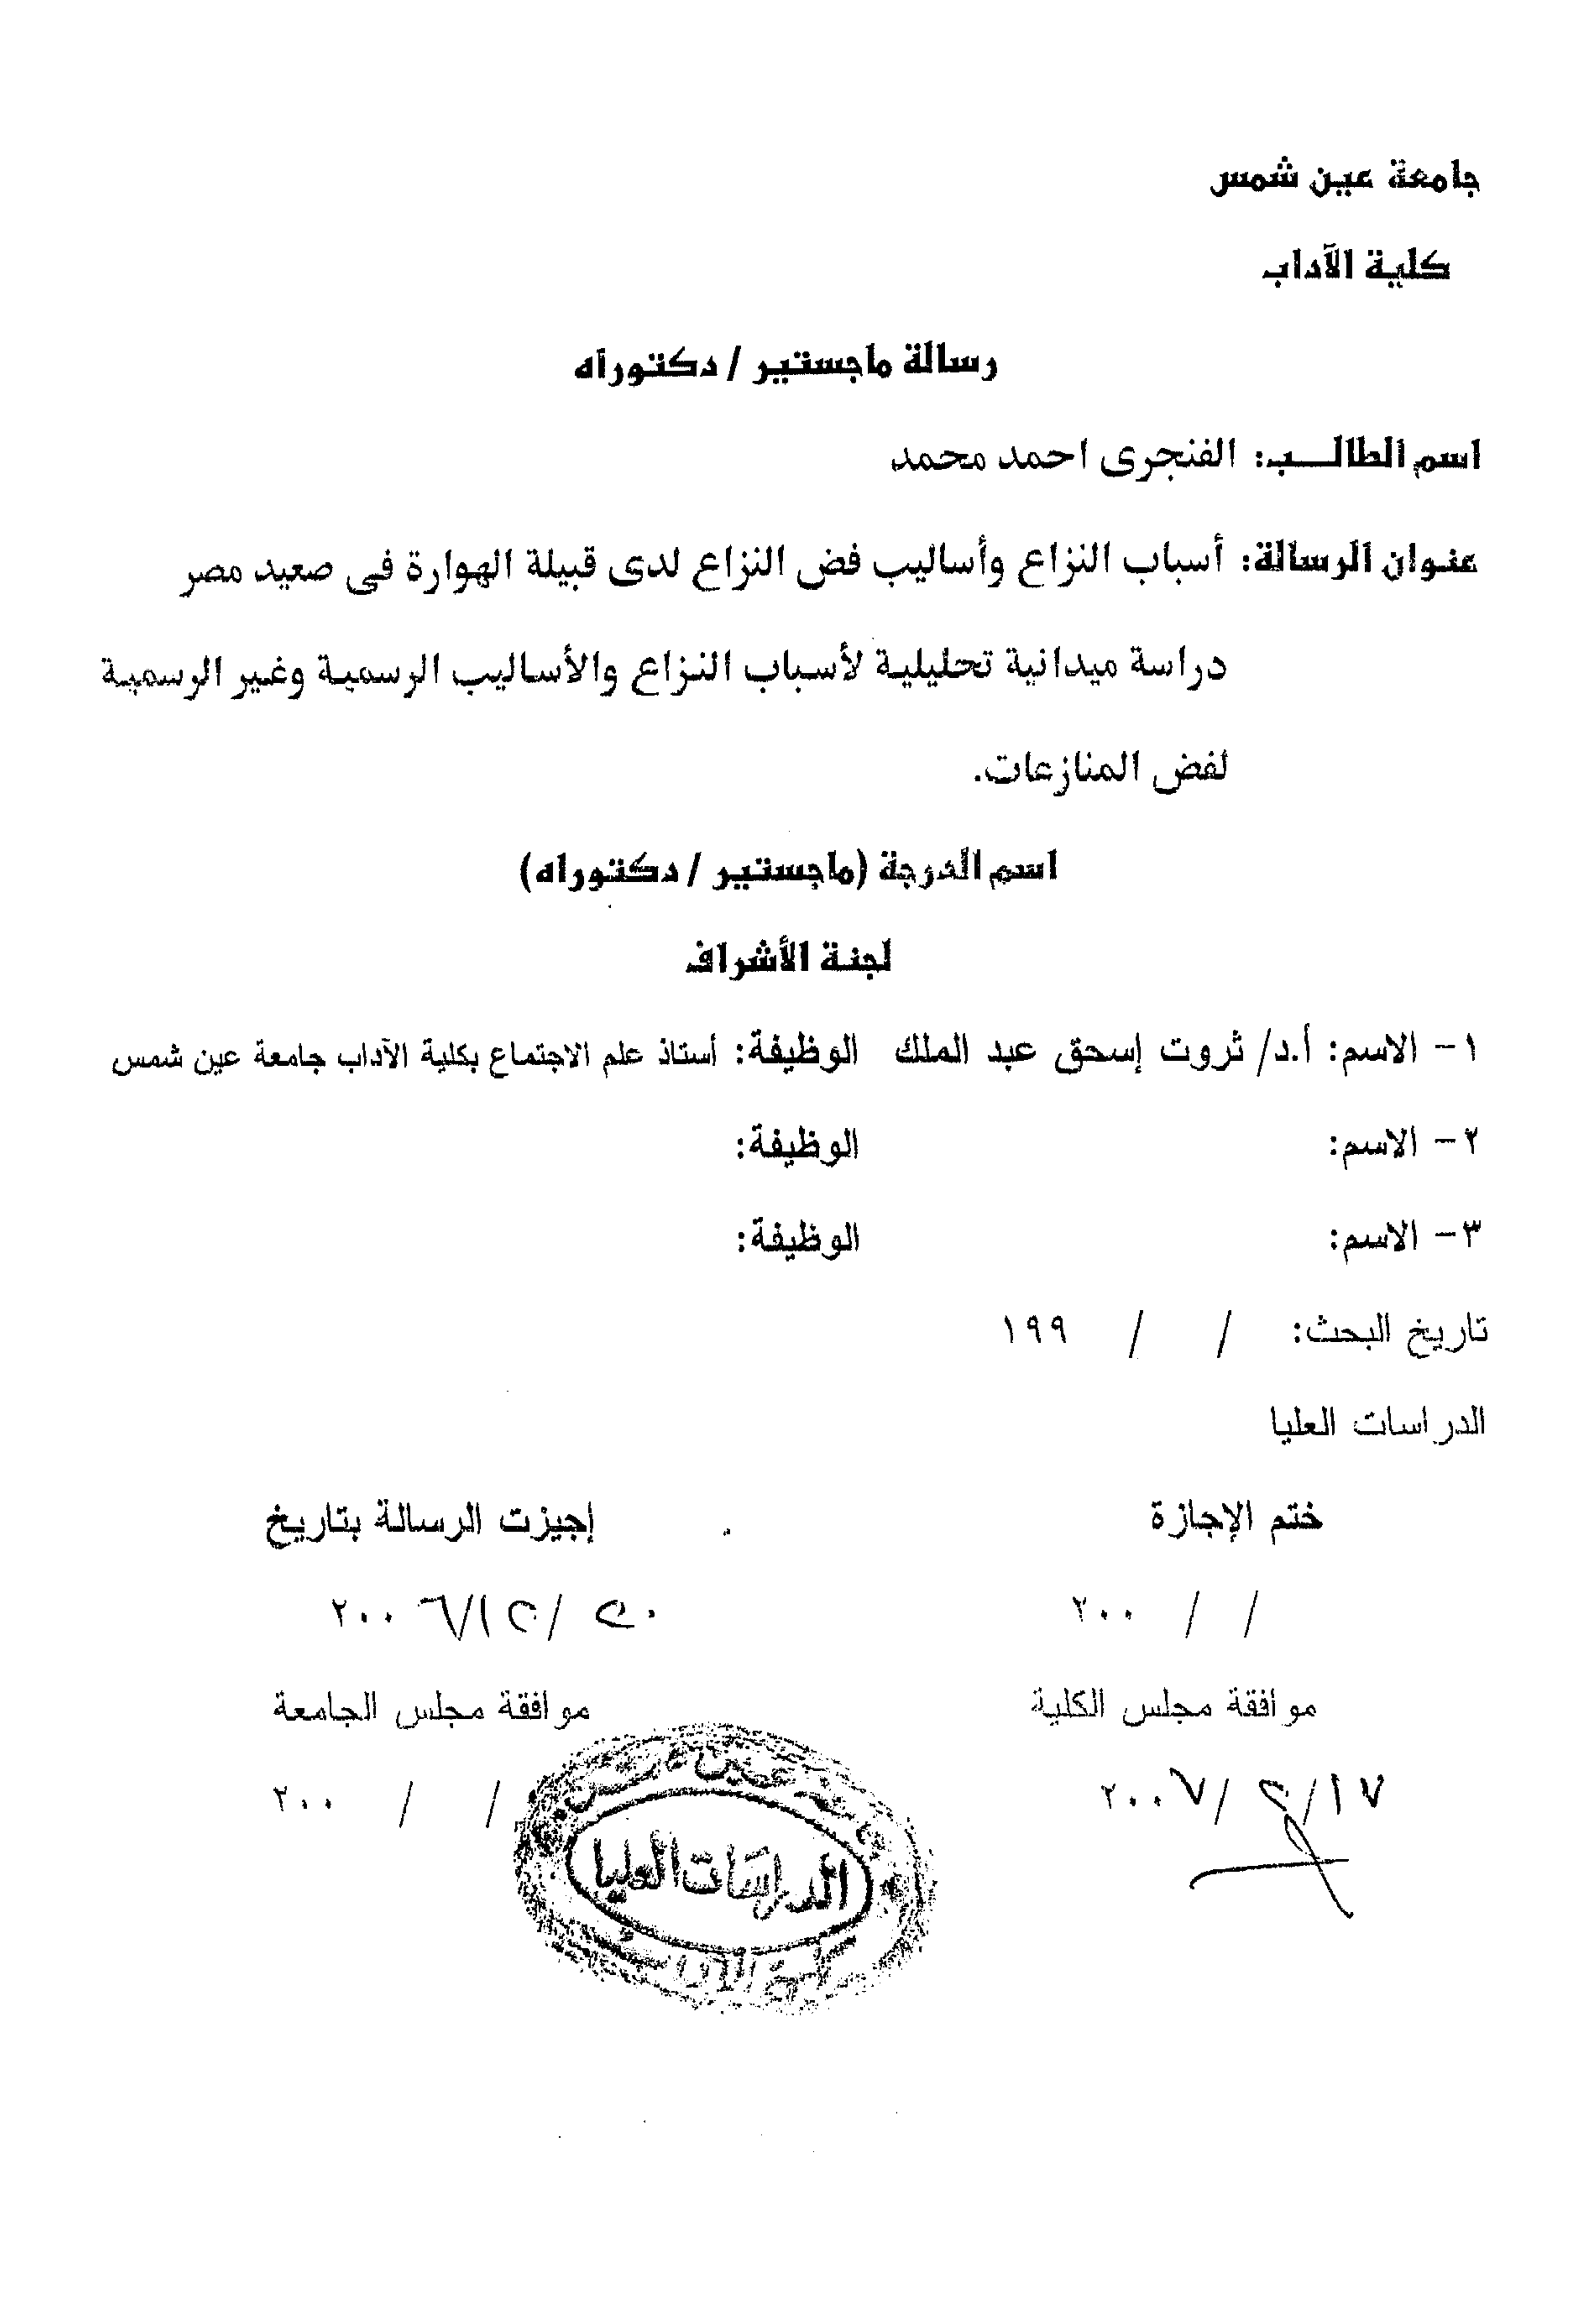 جامعة عين شمس
كلية الآداب
رسالة ماجستير / دكتوراه
اسم الطالـــب: الفنجرى احمد محمد
عنوان الرسالة: أسباب النزاع وأساليب فض النزاع لدى قبيلة الهوارة فى صعيد مصر
دراسة ميدانية تحليلية لأسباب النزاع والأساليب الرسمية وغير الرسمية
لفض المنازعات.
اسم الدرجة (ماجستير / دكتوراه)
لجنة الأشراف
١- الاسم: أ.د/ ثروت إسحق عبد الملك الوظيفة: أستاذ علم الاجتماع بكلية الآداب جامعة عين شمس
٢- الاسم: الوظيفة:
٣- الاسم: الوظيفة:
تاريخ البحث: / / ١٩٩
الدراسات العليا
ختم الإجازة إجيزت الرسالة بتاريخ
/ / ٢٠٠ ٢٠/١٢/٢٠٠٦
موافقة مجلس الكلية موافقة مجلس الجامعة
١٧/٢/٢٠٠٧ / / ٢٠٠
الدراسات العليا
كلية الآداب